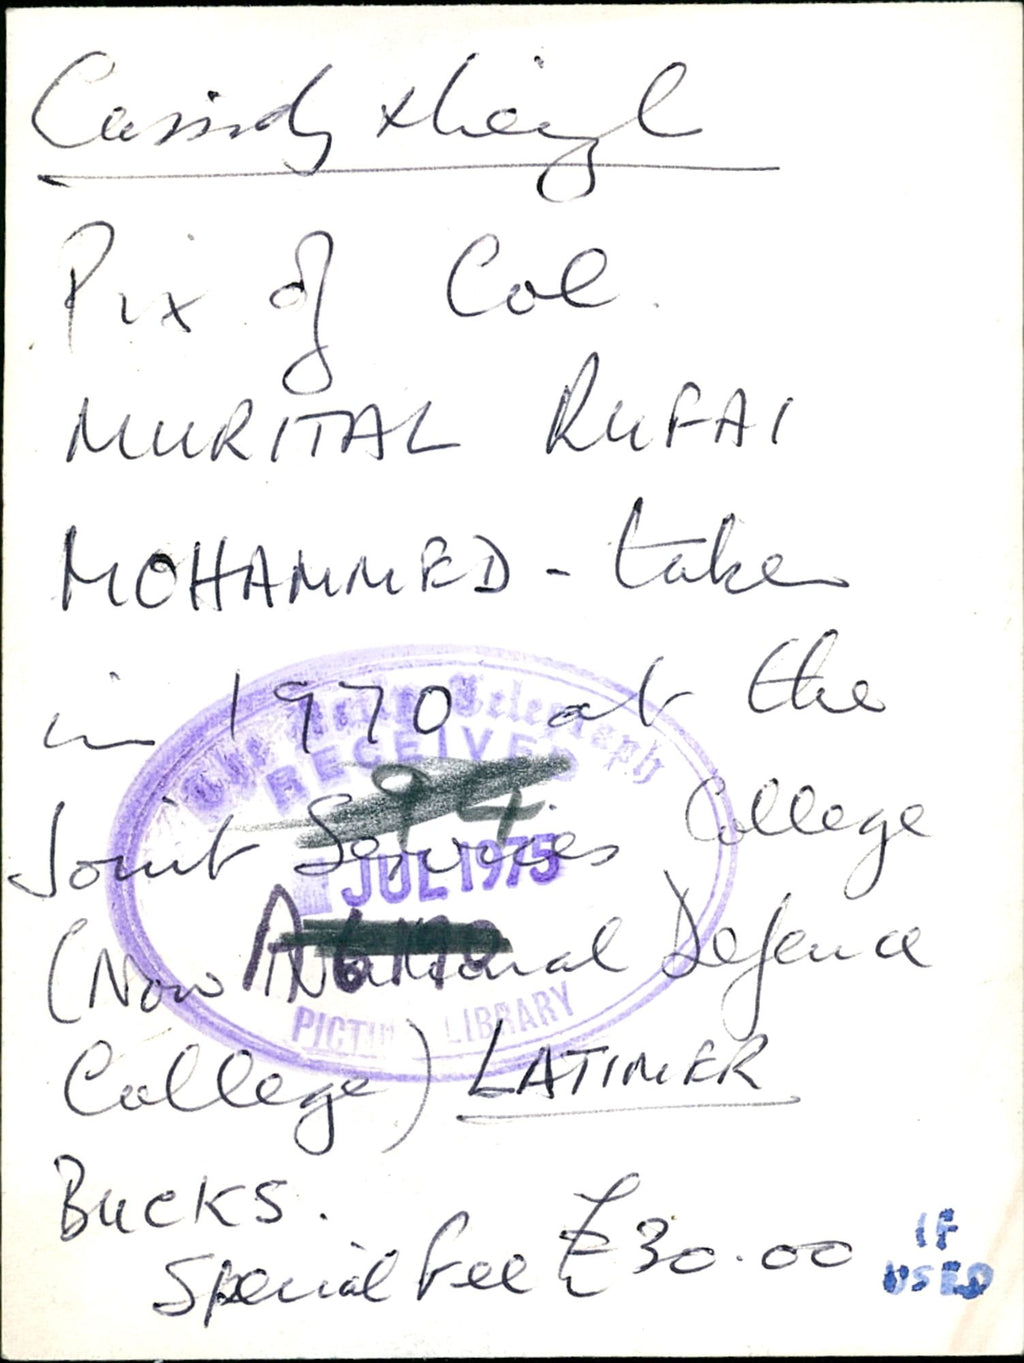 Cassidy & Leigh
Pix of Col.
MURITAL RUFAI
MOHAMMED - taken
in 1970 at the
Joint Services College
(Now National Defence
College) LATIMER
BUCKS.
Special fee £30.00
IF
USED
The Daily Telegraph
RECEIVED
94
JUL 1975
PICTURE LIBRARY